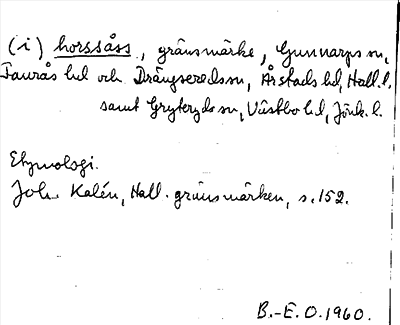 (i) horssåss, gränsmärke, Gunnarps sn,
Faurås hd och Drängsereds sn, Årstads hd, Hall. l.
samt Gryteryds sn, Västbo hd, Jönk. l.
Etymologi.
Joh. Kalén, Hall. gränsmärken, s. 152.
B.-E.O. 1960.